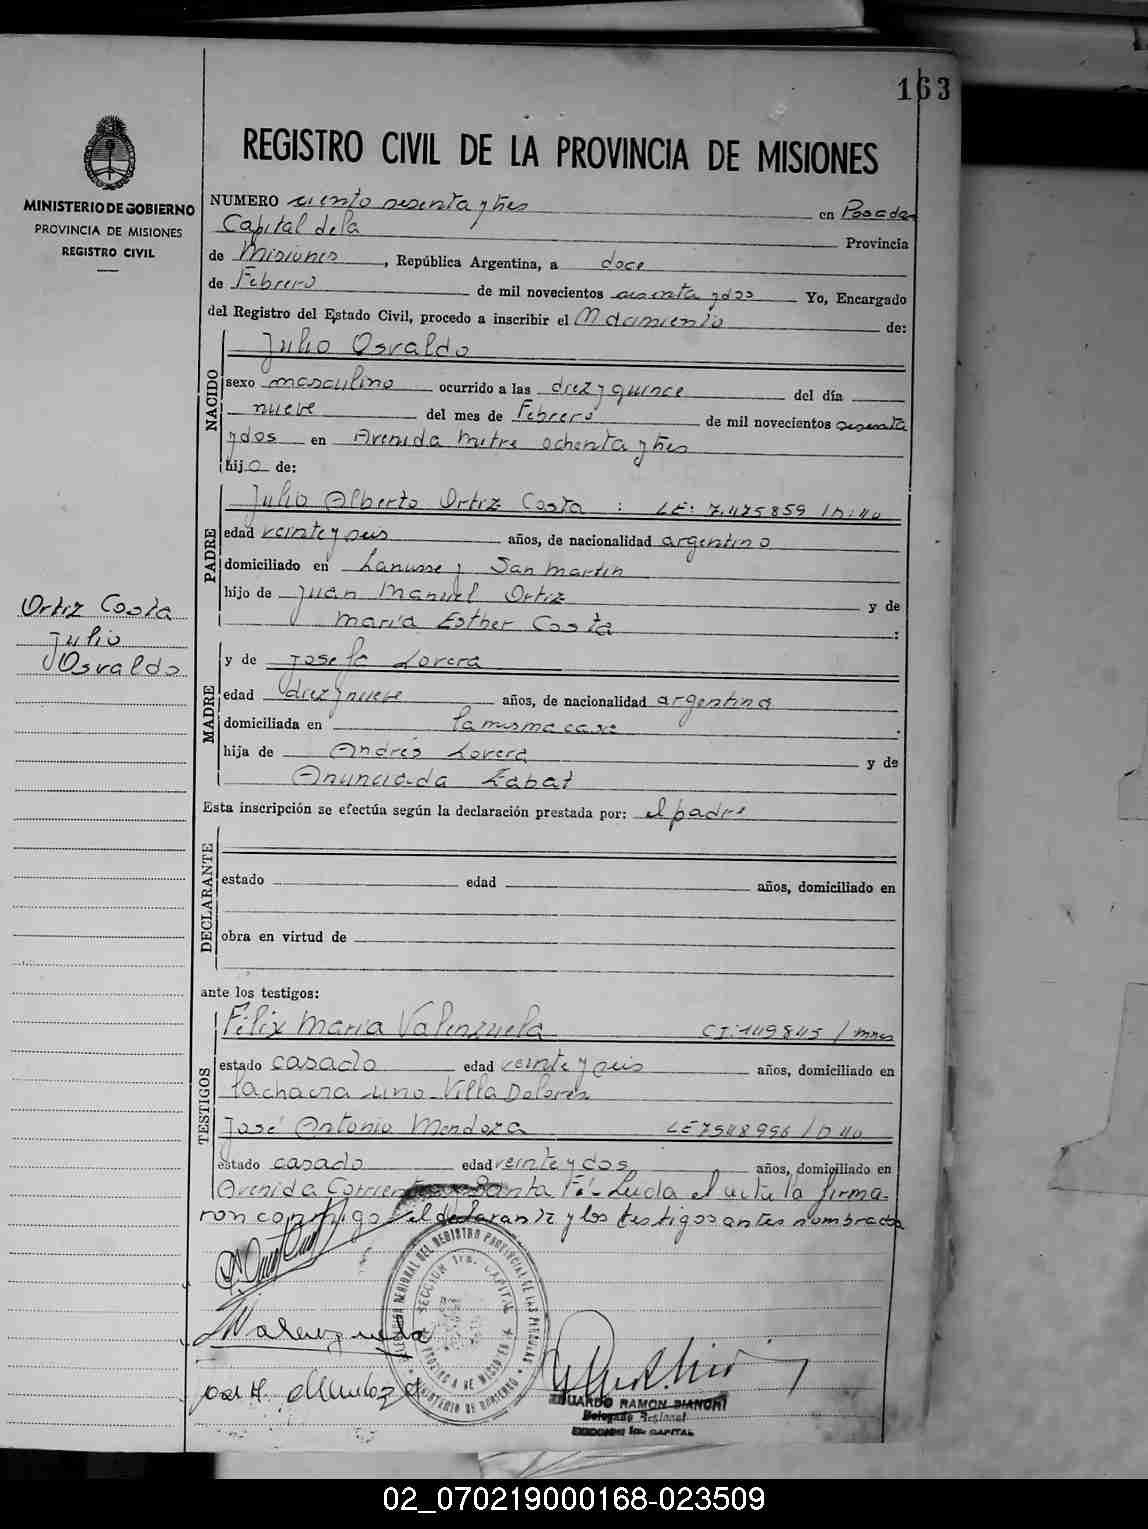 163
REGISTRO CIVIL DE LA PROVINCIA DE MISIONES
MINISTERIO DE GOBIERNO
PROVINCIA DE MISIONES
REGISTRO CIVIL
NUMERO ciento sesenta y tres en Posadas
Capital de la Provincia
de Misiones, República Argentina, a doce
de Febrero de mil novecientos sesenta y dos Yo, Encargado
del Registro del Estado Civil, procedo a inscribir el Nacimiento de:
NACIDO
Julio Osvaldo
sexo masculino ocurrido a las diez y quince del día
nueve del mes de Febrero de mil novecientos sesenta
y dos en Avenida Mitre ochenta y tres
hijo de:
PADRE
Julio Alberto Ortiz Costa : LE: 7.475859 / D:40
edad veinte y seis años, de nacionalidad argentino
domiciliado en Lanusse y San Martin
hijo de Juan Manuel Ortiz y de
Maria Esther Costa :
Ortiz Costa
Julio
Osvaldo
MADRE
y de Josefa Lovera
edad diez y nueve años, de nacionalidad argentina
domiciliada en la misma casa .
hija de Andrés Lovera y de
Anunciada Labat
Esta inscripción se efectúa según la declaración prestada por: el padre
DECLARANTE
estado edad años, domiciliado en
obra en virtud de
ante los testigos:
TESTIGOS
Félix Maria Valenzuela CI:149845 / mnes
estado casado edad veinte y seis años, domiciliado en
la chacra uno Villa Dolores
José Antonio Mendoza LE 7548996 / D 40
estado casado edad veinte y dos años, domiciliado en
Avenida Corrientes y Santa Fé - Leida el acta la firma-
ron conmigo el declarante y los testigos antes nombrados
Valenzuela
José A. Mendoza
EDUARDO RAMON BIANCHI
Delegado Regional
SECCION 1ra. CAPITAL
02_070219000168-023509